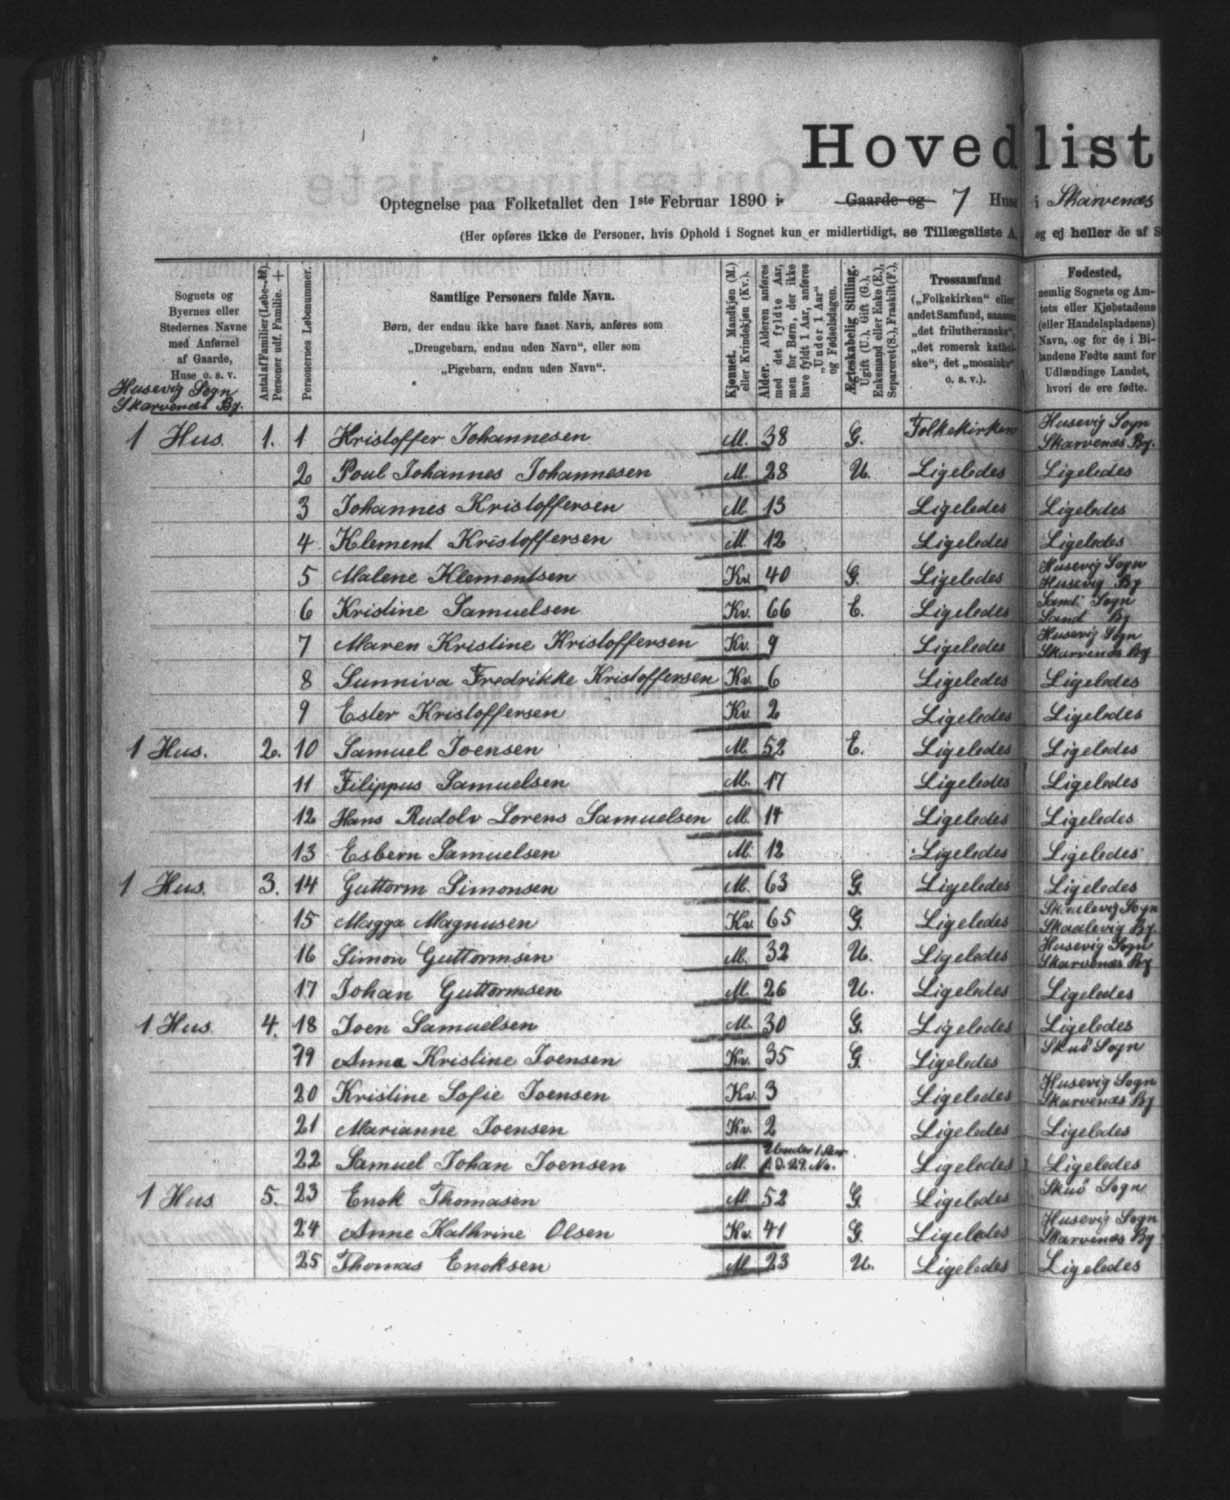 Hovedlist
Optegnelse paa Folketallet den 1ste Februar 1890 i Gaarde og 7 Huse i Skarvenæs
(Her opføres ikke de Personer, hvis Ophold i Sognet kun er midlertidigt, se Tillægsliste A, og ej heller de af S
Sognets og
Byernes eller
Stedernes Navne
med Anførsel
af Gaarde,
Huse o. s. v.
Husevig Sogn
Skarvenæs By.
Antal af Familier (Løbe-№).
Personer udf. Familie. +
Personernes Løbenummer.
Samtlige Personers fulde Navn.
Børn, der endnu ikke have faaet Navn, anføres som
„Drengebarn, endnu uden Navn“, eller som
„Pigebarn, endnu uden Navn“.
Kjønnet. Mandkjøn (M.)
eller Kvindekjøn (Kv.).
Alder. Alderen anføres
med det fyldte Aar,
men for Børn, der ikke
have fyldt 1 Aar, anføres
„Under 1 Aar“
og Fødselsdagen.
Ægteskabelig Stilling.
Ugift (U.), Gift (G.),
Enkemand eller Enke (E.),
Separeret (S.), Fraskilt (F.).
Trossamfund
(„Folkekirken“ eller
andet Samfund, saasom
„det frilutheranske“,
„det romersk katholske“, det „mosaiske“
o. s. v.).
Fødested,
nemlig Sognets og Amtets eller Kjøbstadens
(eller Handelspladsens)
Navn, og for de i Bilandene Fødte samt for
Udlændinge Landet,
hvori de ere fødte.
1 Hus. 1. 1 Kristoffer Johannesen M. 38 G. Folkekirken Husevig Sogn Skarvenæs By.
2 Poul Johannes Johannesen M. 28 U. Ligeledes Ligeledes
3 Johannes Kristoffersen M. 13 Ligeledes Ligeledes
4 Klement Kristoffersen M. 12 Ligeledes Ligeledes
5 Malene Klementsen Kv. 40 G. Ligeledes Husevig Sogn Husevig By
6 Kristine Samuelsen Kv. 66 E. Ligeledes Sand Sogn Sand By
7 Maren Kristine Kristoffersen Kv. 9 Ligeledes Husevig Sogn Skarvenæs By
8 Sunniva Fredrikke Kristoffersen Kv. 6 Ligeledes Ligeledes
9 Ester Kristoffersen Kv. 2 Ligeledes Ligeledes
1 Hus. 2. 10 Samuel Joensen M. 52 E. Ligeledes Ligeledes
11 Filippus Samuelsen M. 17 Ligeledes Ligeledes
12 Hans Rudolv Lorens Samuelsen M. 14 Ligeledes Ligeledes
13 Esbern Samuelsen M. 12 Ligeledes Ligeledes
1 Hus. 3. 14 Guttorm Simonsen M. 63 G. Ligeledes Ligeledes
15 Magga Magnusen Kv. 65 G. Ligeledes Skaalevig Sogn Skaalevig By.
16 Simon Guttormsen M. 32 U. Ligeledes Husevig Sogn Skarvenæs By
17 Johan Guttormsen M. 26 U. Ligeledes Ligeledes
1 Hus 4. 18 Joen Samuelsen M. 30 G. Ligeledes Ligeledes
19 Anna Kristine Joensen Kv. 35 G. Ligeledes Skuö Sogn
20 Kristine Sofie Joensen Kv. 3 Ligeledes Husevig Sogn Skarvenæs By
21 Marianne Joensen Kv. 2 Ligeledes Ligeledes
22 Samuel Johan Joensen M. Under 1 Aar 29. No. Ligeledes Ligeledes
1 Hus 5. 23 Enok Thomasen M. 52 G. Ligeledes Skuö Sogn
24 Anne Kathrine Olsen Kv. 41 G. Ligeledes Husevig Sogn Skarvenæs By
25 Thomas Enoksen M. 23 U. Ligeledes Ligeledes